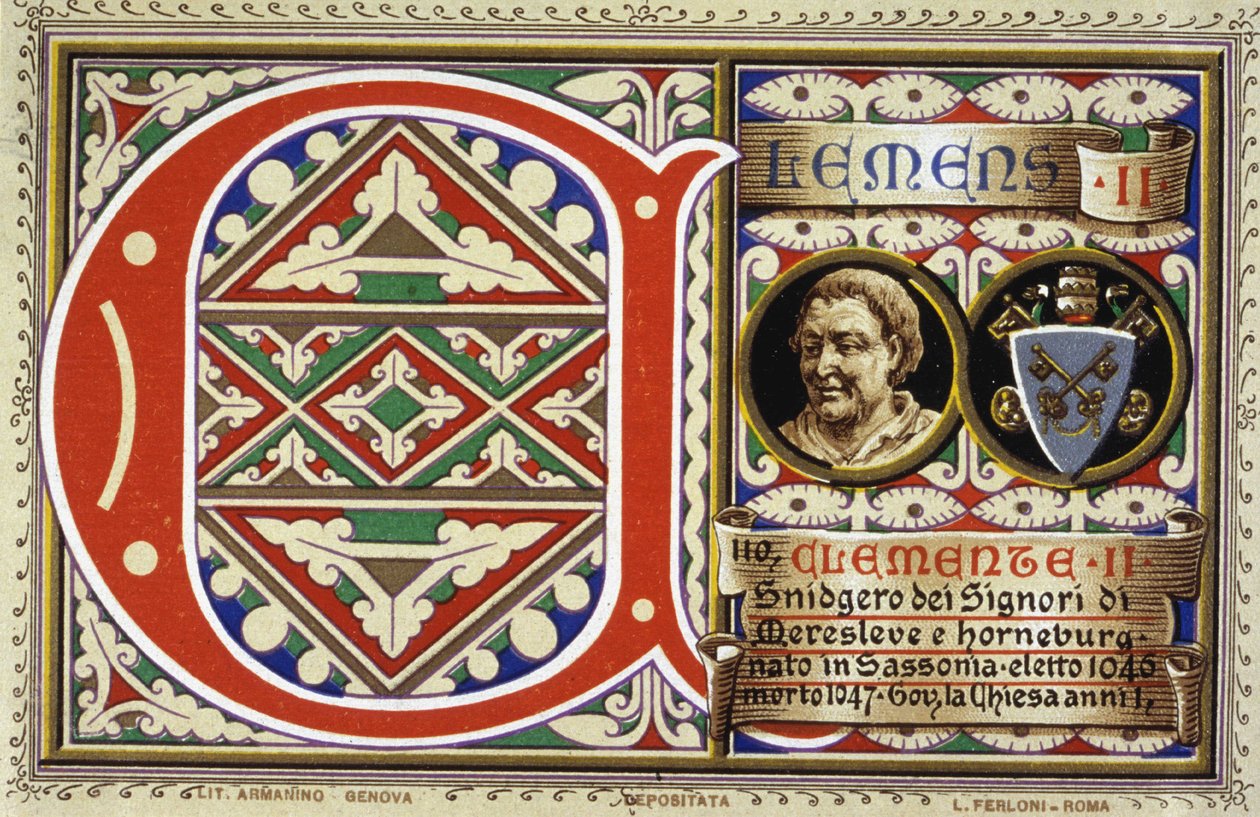 C
LEMENS
·II·
110, CLEMENTE·II·
Snidgero dei Signori di
Meresleve e horneburg·
nato in Sassonia·eletto 1046
morto 1047·Gov, la Chiesa anni 1,
LIT. ARMANINO GENOVA
DEPOSITATA
L. FERLONI-ROMA